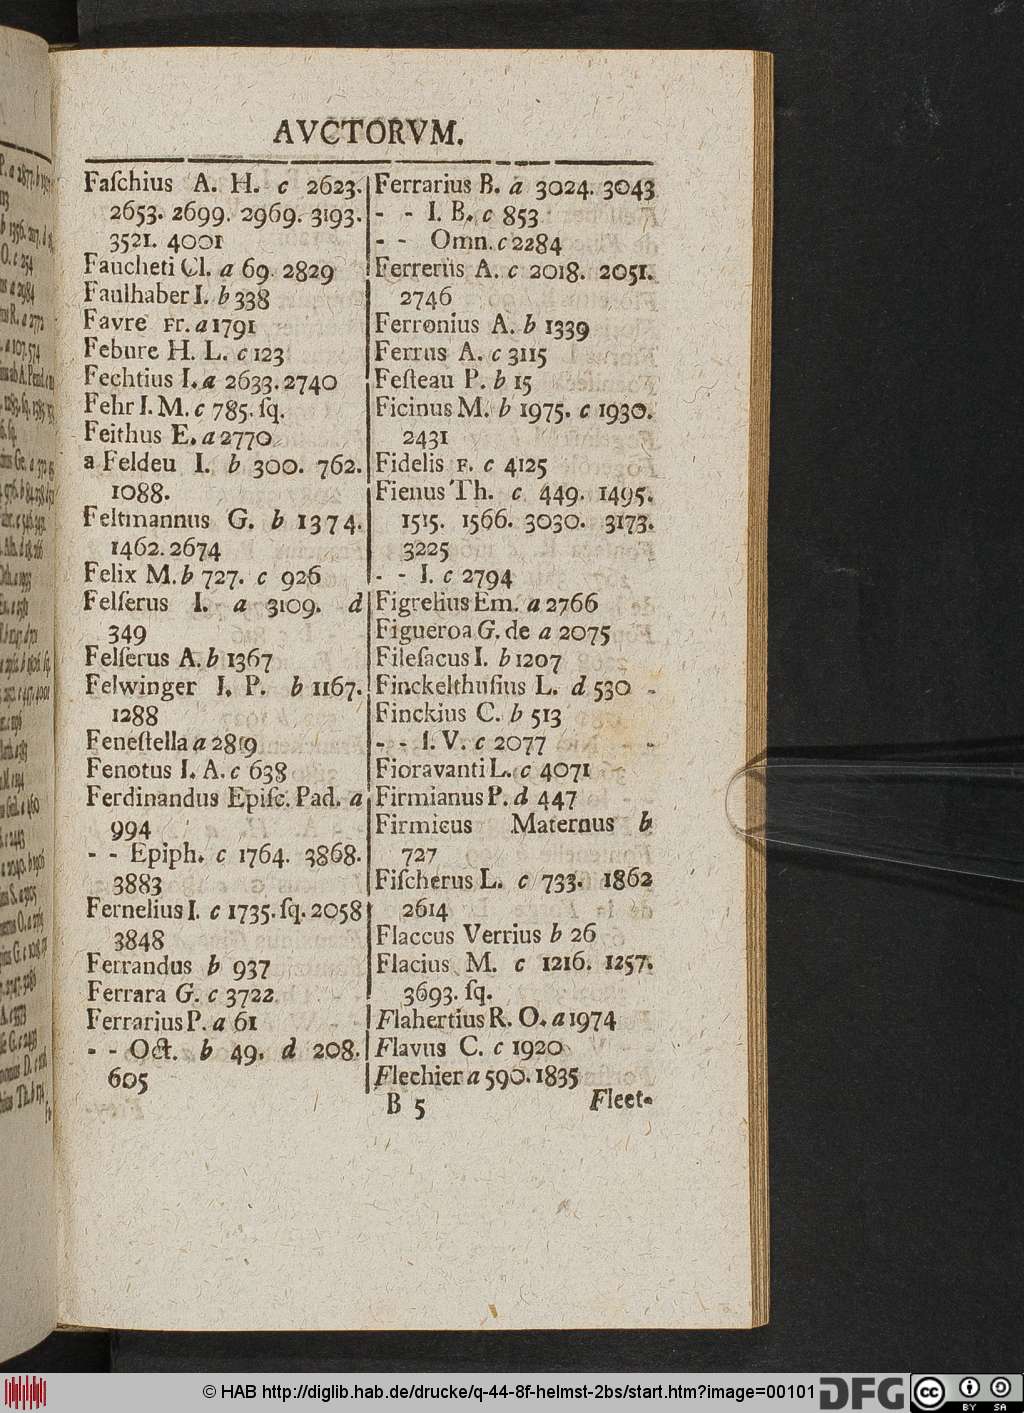 AVCTORVM.
Faſchius A. H. c 2623.
2653. 2699. 2969. 3193.
3521. 4001
Faucheti Cl. a 69. 2829
Faulhaber I. b 338
Favre Fr. a 1791
Febure H. L. c 123
Fechtius I. a 2633. 2740
Fehr I. M. c 785. ſq.
Feithus E. a 2770
a Feldeu I. b 300. 762.
1088.
Feltmannus G. b 1374.
1462. 2674
Felix M. b 727. c 926
Felſerus I. a 3109. d
349
Felſerus A. b 1367
Felwinger I. P. b 1167.
1288
Feneſtella a 2819
Fenotus I. A. c 638
Ferdinandus Epiſc. Pad. a
994
- - Epiph. c 1764. 3868.
3883
Fernelius I. c 1735. ſq. 2058
3848
Ferrandus b 937
Ferrara G. c 3722
Ferrarius P. a 61
- - Oct. b 49. d 208.
605
Ferrarius B. a 3024. 3043
- - I. B. c 853
- - Omn. c 2284
Ferrerius A. c 2018. 2051.
2746
Ferronius A. b 1339
Ferrus A. c 3115
Feſteau P. b 15
Ficinus M. b 1975. c 1930.
2431
Fidelis F. c 4125
Fienus Th. c 449. 1495.
1515. 1566. 3030. 3173.
3225
- - I. c 2794
Figrelius Em. a 2766
Figueroa G. de a 2075
Fileſacus I. b 1207
Finckelthuſius L. d 530
Finckius C. b 513
- - I. V. c 2077
Fioravanti L. c 4071
Firmianus P. d 447
Firmicus Maternus b
727
Fiſcherus L. c 733. 1862
2614
Flaccus Verrius b 26
Flacius M. c 1216. 1257.
3693. ſq.
Flahertius R. O. a 1974
Flavus C. c 1920
Flechier a 590. 1835
B 5 Fleet-
© HAB http://diglib.hab.de/drucke/q-44-8f-helmst-2bs/start.htm?image=00101
DFG
cc BY SA